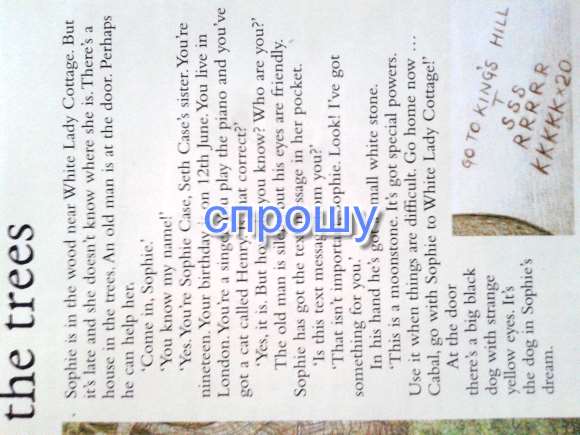 the trees
Sophie is in the wood near White Lady Cottage. But
it's late and she doesn't know where she is. There's a
house in the trees. An old man is at the door. Perhaps
he can help her.
'Come in, Sophie.'
'You know my name!'
'Yes. You're Sophie Case, Seth Case's sister. You're
nineteen. Your birthday's on 12th June. You live in
London. You're a singer. You play the piano and you've
got a cat called Henry. Is that correct?'
'Yes, it is. But how do you know? Who are you?'
The old man is silent, but his eyes are friendly.
Sophie has got the text message in her pocket.
'Is this text message from you?'
'That isn't important, Sophie. Look! I've got
something for you.'
In his hand he's got a small white stone.
'This is a moonstone. It's got special powers.
Use it when things are difficult. Go home now ...
Cabal, go with Sophie to White Lady Cottage!'
At the door
there's a big black
dog with strange
yellow eyes. It's
the dog in Sophie's
dream.
GO TO KING'S HILL
T
SSS
RRRRR
KKKKK×20
спрошу